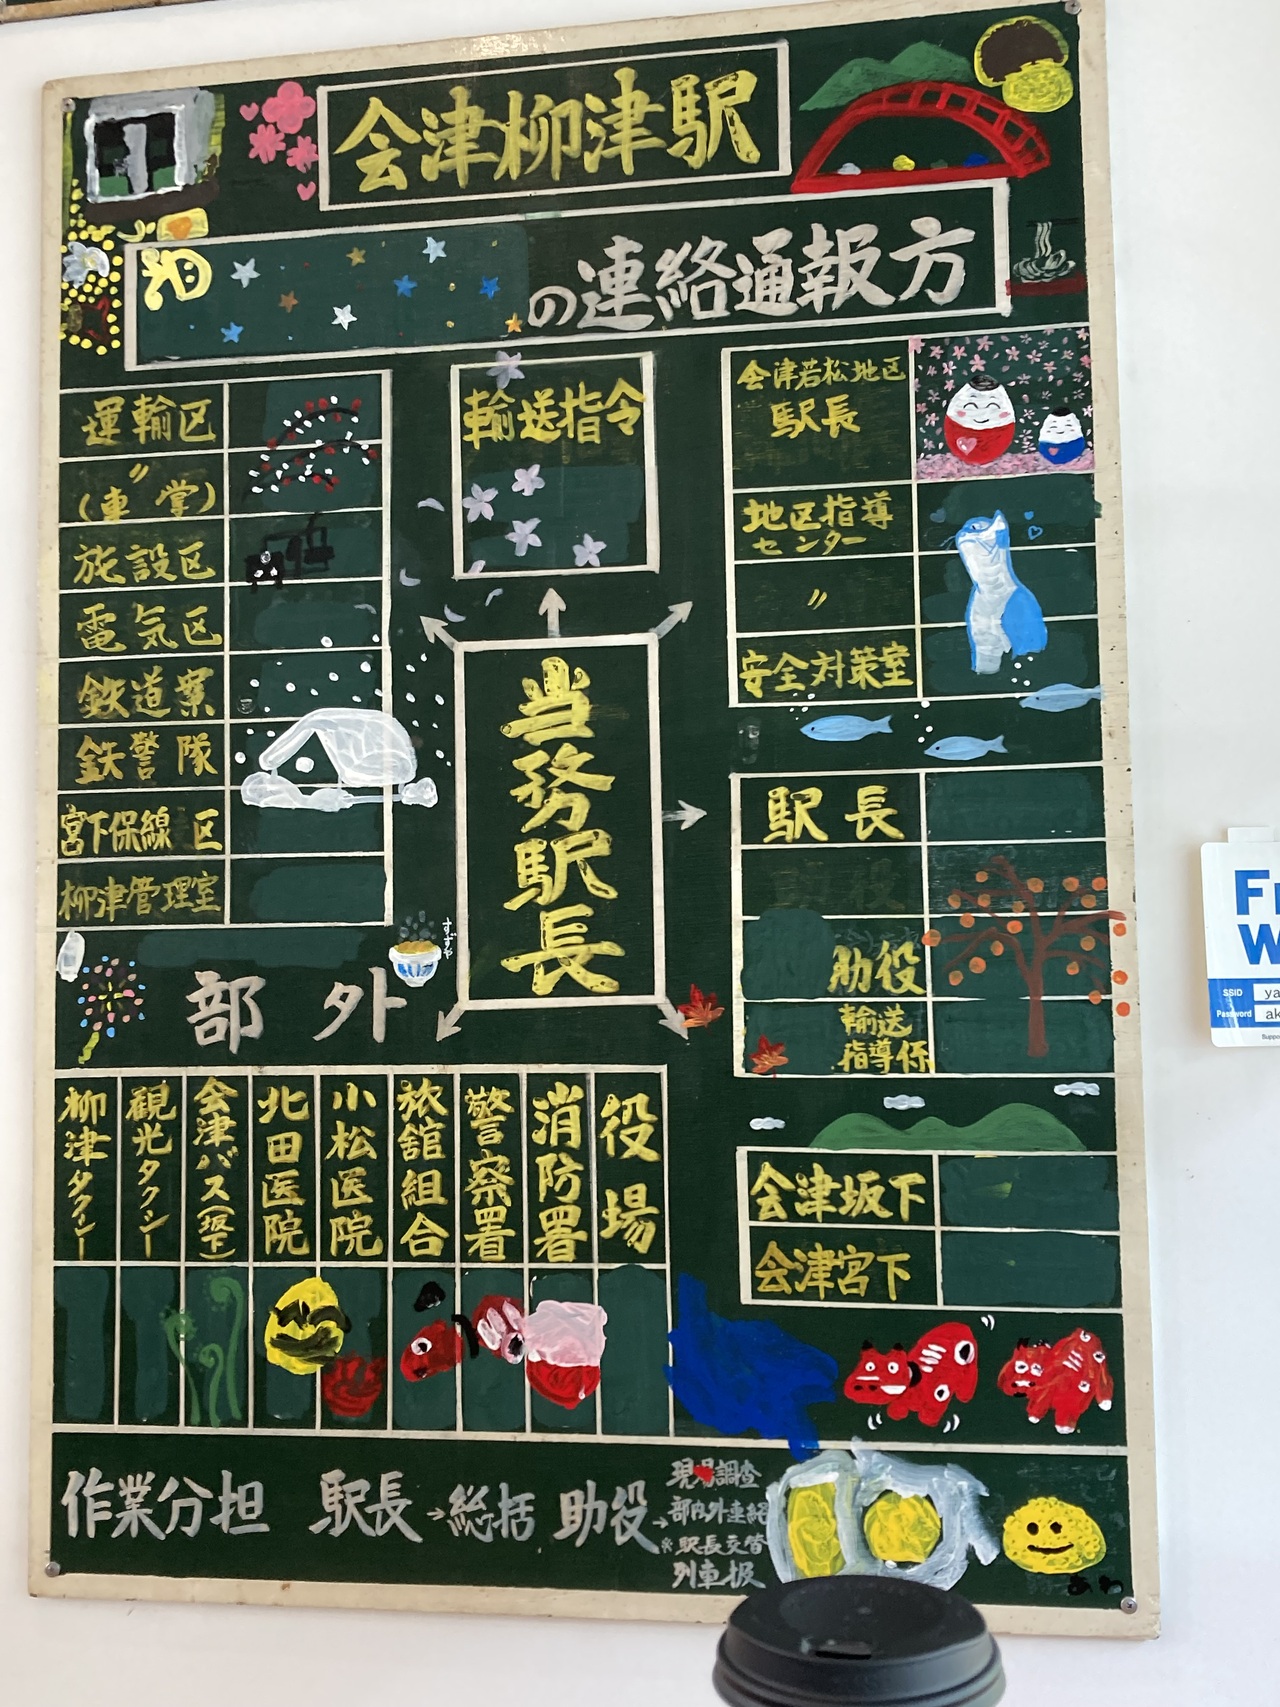 会津柳津駅
の連絡通報方
運輸区
〃
(車掌)
施設区
電気区
鉄道業
鉄警隊
宮下保線区
柳津管理室
輸送指令
会津若松地区
駅長
地区指導
センター
〃
安全対策室
当務駅長
駅長
助役
輸送
指導係
部外
柳津タクシー
観光タクシー
会津バス(坂下)
北田医院
小松医院
旅舘組合
警察署
消防署
役場
会津坂下
会津宮下
作業分担 駅長→総括 助役→
現場調査
部内外連絡
※駅長交替
列車扱
あわ
SSID
Password